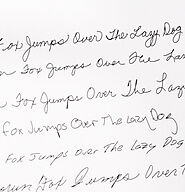 Fox Jumps Over The Lazy Dog
n Fox Jumps Over The Laz
n Fox Jumps Over The L
Fox Jumps Over The lazy Dog
Fox Jumps over The lazy Dog
rown Fox Jumps Over T